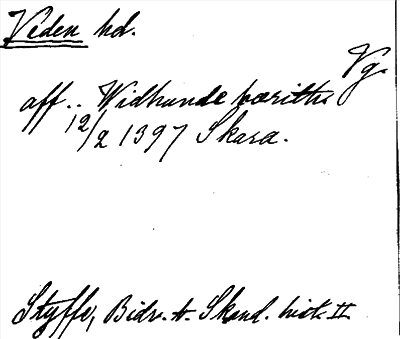 Veden hd.
Vg.
aff.. Widhunde hærith
12/2 1397 Skara.
Styffe, Bidr. t. Skand. hist. II